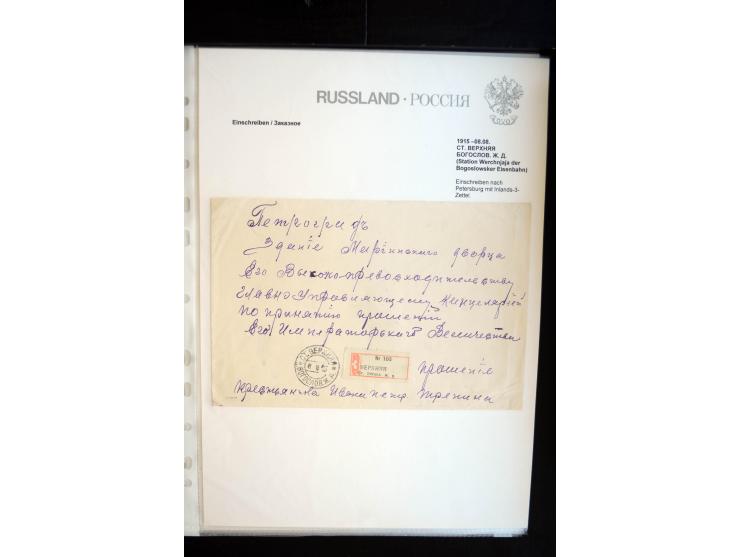 RUSSLAND · РОССИЯ
Einschreiben / Заказное
1915 –08.08.
СТ. ВЕРХНЯЯ
БОГОСЛОВ. Ж. Д.
(Station Werchnjaja der
Bogoslowsker Eisenbahn)
Einschreiben nach
Petersburg mit Inlands-3-
Zettel.
Петроградъ
Зданіе Маріинского дворца
Его Высоко-превосходительству
Главно Управляющему Канцелярией
по принятію прошеній
Его Императорского Величества
СТ. ВЕРХНЯЯ
БОГОСЛОВ. Ж. Д.
З
№ 100
ВЕРХНЯЯ
прошеніе
крестьянина Ивана